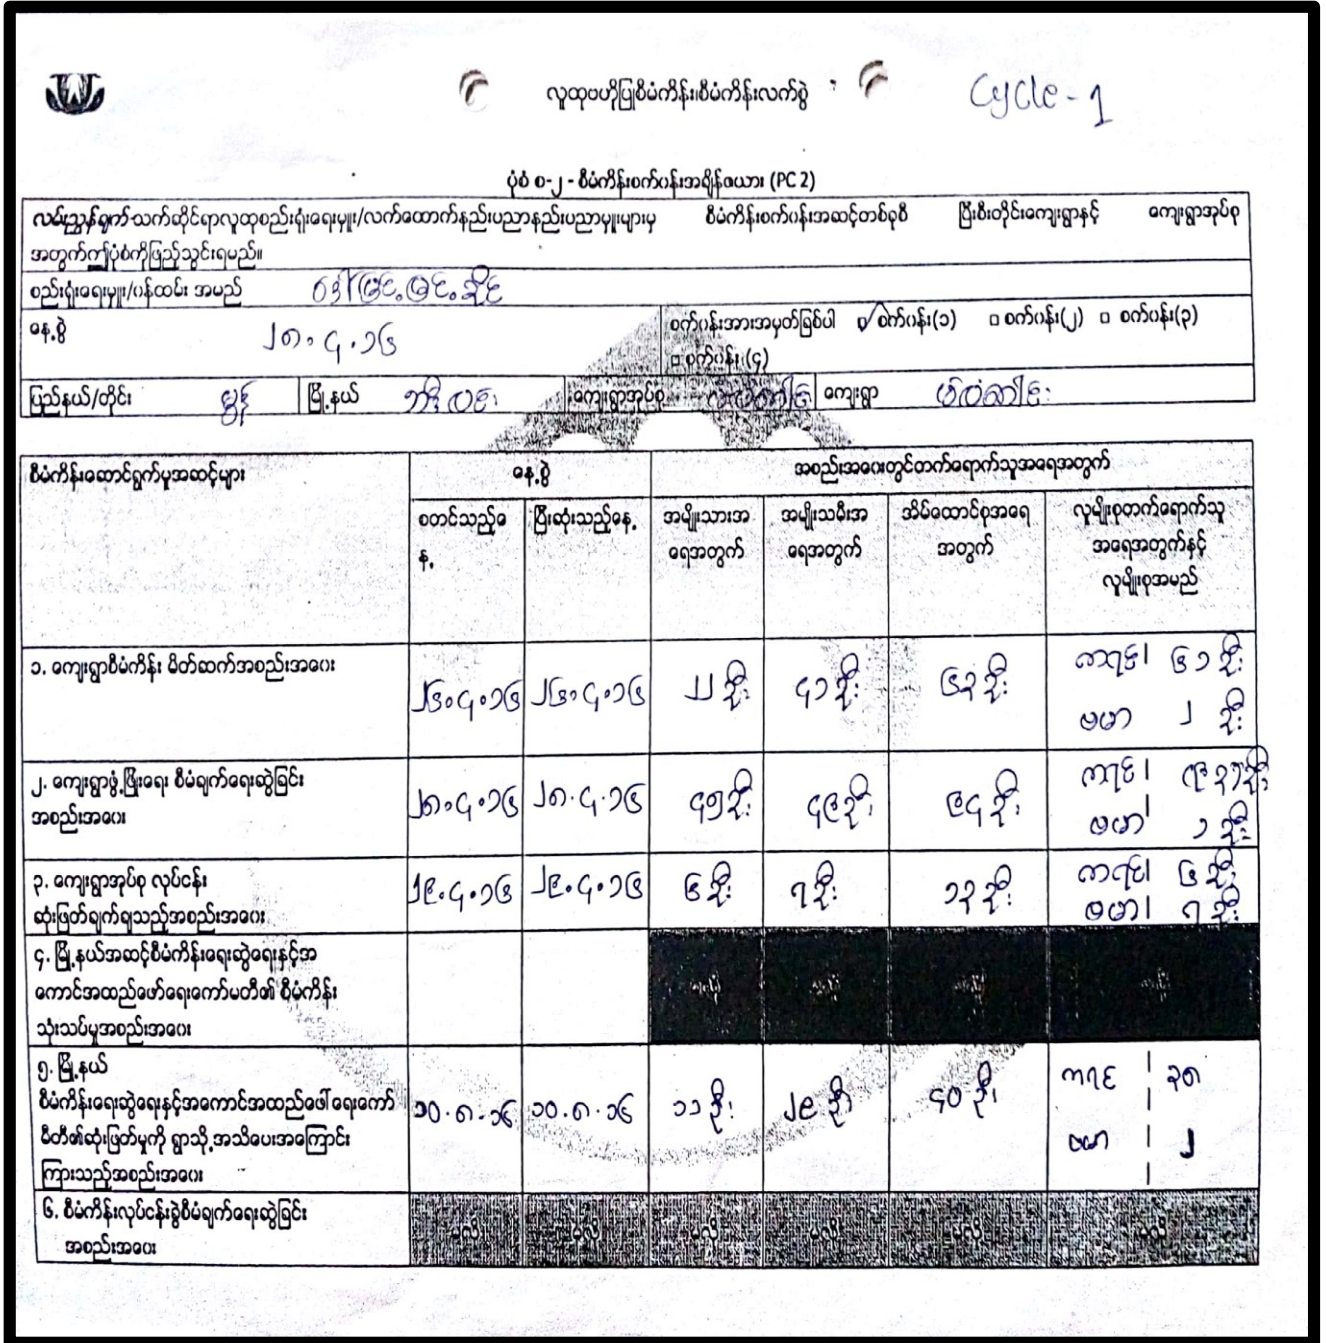 လူထုဗဟိုပြုစီမံကိန်း၊စီမံကိန်းလက်စွဲ
Cycle - ၁
ပုံစံ စ-၂ - စီမံကိန်းစက်ဝန်းအချိန်ဇယား (PC 2)
လမ်းညွှန်ချက် သက်ဆိုင်ရာလူထုစည်းရုံးရေးမှူး/လက်ထောက်နည်းပညာနည်းပညာမှူးများမှ စီမံကိန်းစက်ဝန်းအဆင့်တစ်ခုစီ ပြီးစီးတိုင်းကျေးရွာနှင့် ကျေးရွာအုပ်စု
အတွက်ဤပုံစံကိုဖြည့်သွင်းရမည်။
စည်းရုံးရေးမှူး/ဝန်ထမ်း အမည် ဒေါ်မြင့်မြင့်ခိုင်
နေ့စွဲ ၂၈.၄.၁၆ စက်ဝန်းအားအမှတ်ခြစ်ပါ စက်ဝန်း(၁) □ စက်ဝန်း(၂) □ စက်ဝန်း(၃)
□ စက်ဝန်း (၄)
ပြည်နယ်/တိုင်း မွန် မြို့နယ် ဘီးလင်း ကျေးရွာအုပ်စု ကျေးရွာ
စီမံကိန်းဆောင်ရွက်မှုအဆင့်များ နေ့စွဲ အစည်းအဝေးတွင်တက်ရောက်သူအရေအတွက်
စတင်သည့်နေ့ ပြီးဆုံးသည့်နေ့ အမျိုးသားအရေအတွက် အမျိုးသမီးအရေအတွက် အိမ်ထောင်စုအရေအတွက် လူမျိုးစုတက်ရောက်သူ
အရေအတွက်နှင့်
လူမျိုးစုအမည်
၁. ကျေးရွာစီမံကိန်း မိတ်ဆက်အစည်းအဝေး ၂၆.၄.၁၆ ၂၆.၄.၁၆ ၂၂ ဦး ၄၁ ဦး ၆၃ ဦး ကရင် ၆၁ ဦး
ဗမာ ၂ ဦး
၂. ကျေးရွာဖွံ့ဖြိုးရေး စီမံချက်ရေးဆွဲခြင်း
အစည်းအဝေး ၂၈.၄.၁၆ ၂၈.၄.၁၆ ၄၅ ဦး ၄၉ ဦး ၉၄ ဦး ကရင် ၉၃ ဦး
ဗမာ ၁ ဦး
၃. ကျေးရွာအုပ်စု လုပ်ငန်း
ဆုံးဖြတ်ချက်ချသည့်အစည်းအဝေး ၂၉.၄.၁၆ ၂၉.၄.၁၆ ၆ ဦး ၇ ဦး ၁၃ ဦး ကရင် ၆ ဦး
ဗမာ ၇ ဦး
၄. မြို့နယ်အဆင့်စီမံကိန်းရေးဆွဲရေးနှင့်အ
ကောင်အထည်ဖော်ရေးကော်မတီ၏ စီမံကိန်း
သုံးသပ်မှုအစည်းအဝေး
၅. မြို့နယ်
စီမံကိန်းရေးဆွဲရေးနှင့်အကောင်အထည်ဖေါ်ရေးကော်
မီတီ၏ဆုံးဖြတ်မှုကို ရွာသို့ အသိပေးအကြောင်း
ကြားသည့်အစည်းအဝေး ၁၀.၈.၁၆ ၁၀.၈.၁၆ ၁၁ ဦး ၂၉ ဦး ၄၀ ဦး ကရင် ၃၈
ဗမာ ၂
၆. စီမံကိန်းလုပ်ငန်းခွဲစီမံချက်ရေးဆွဲခြင်း
အစည်းအဝေး မလို မလို မလို မလို မလို မလို